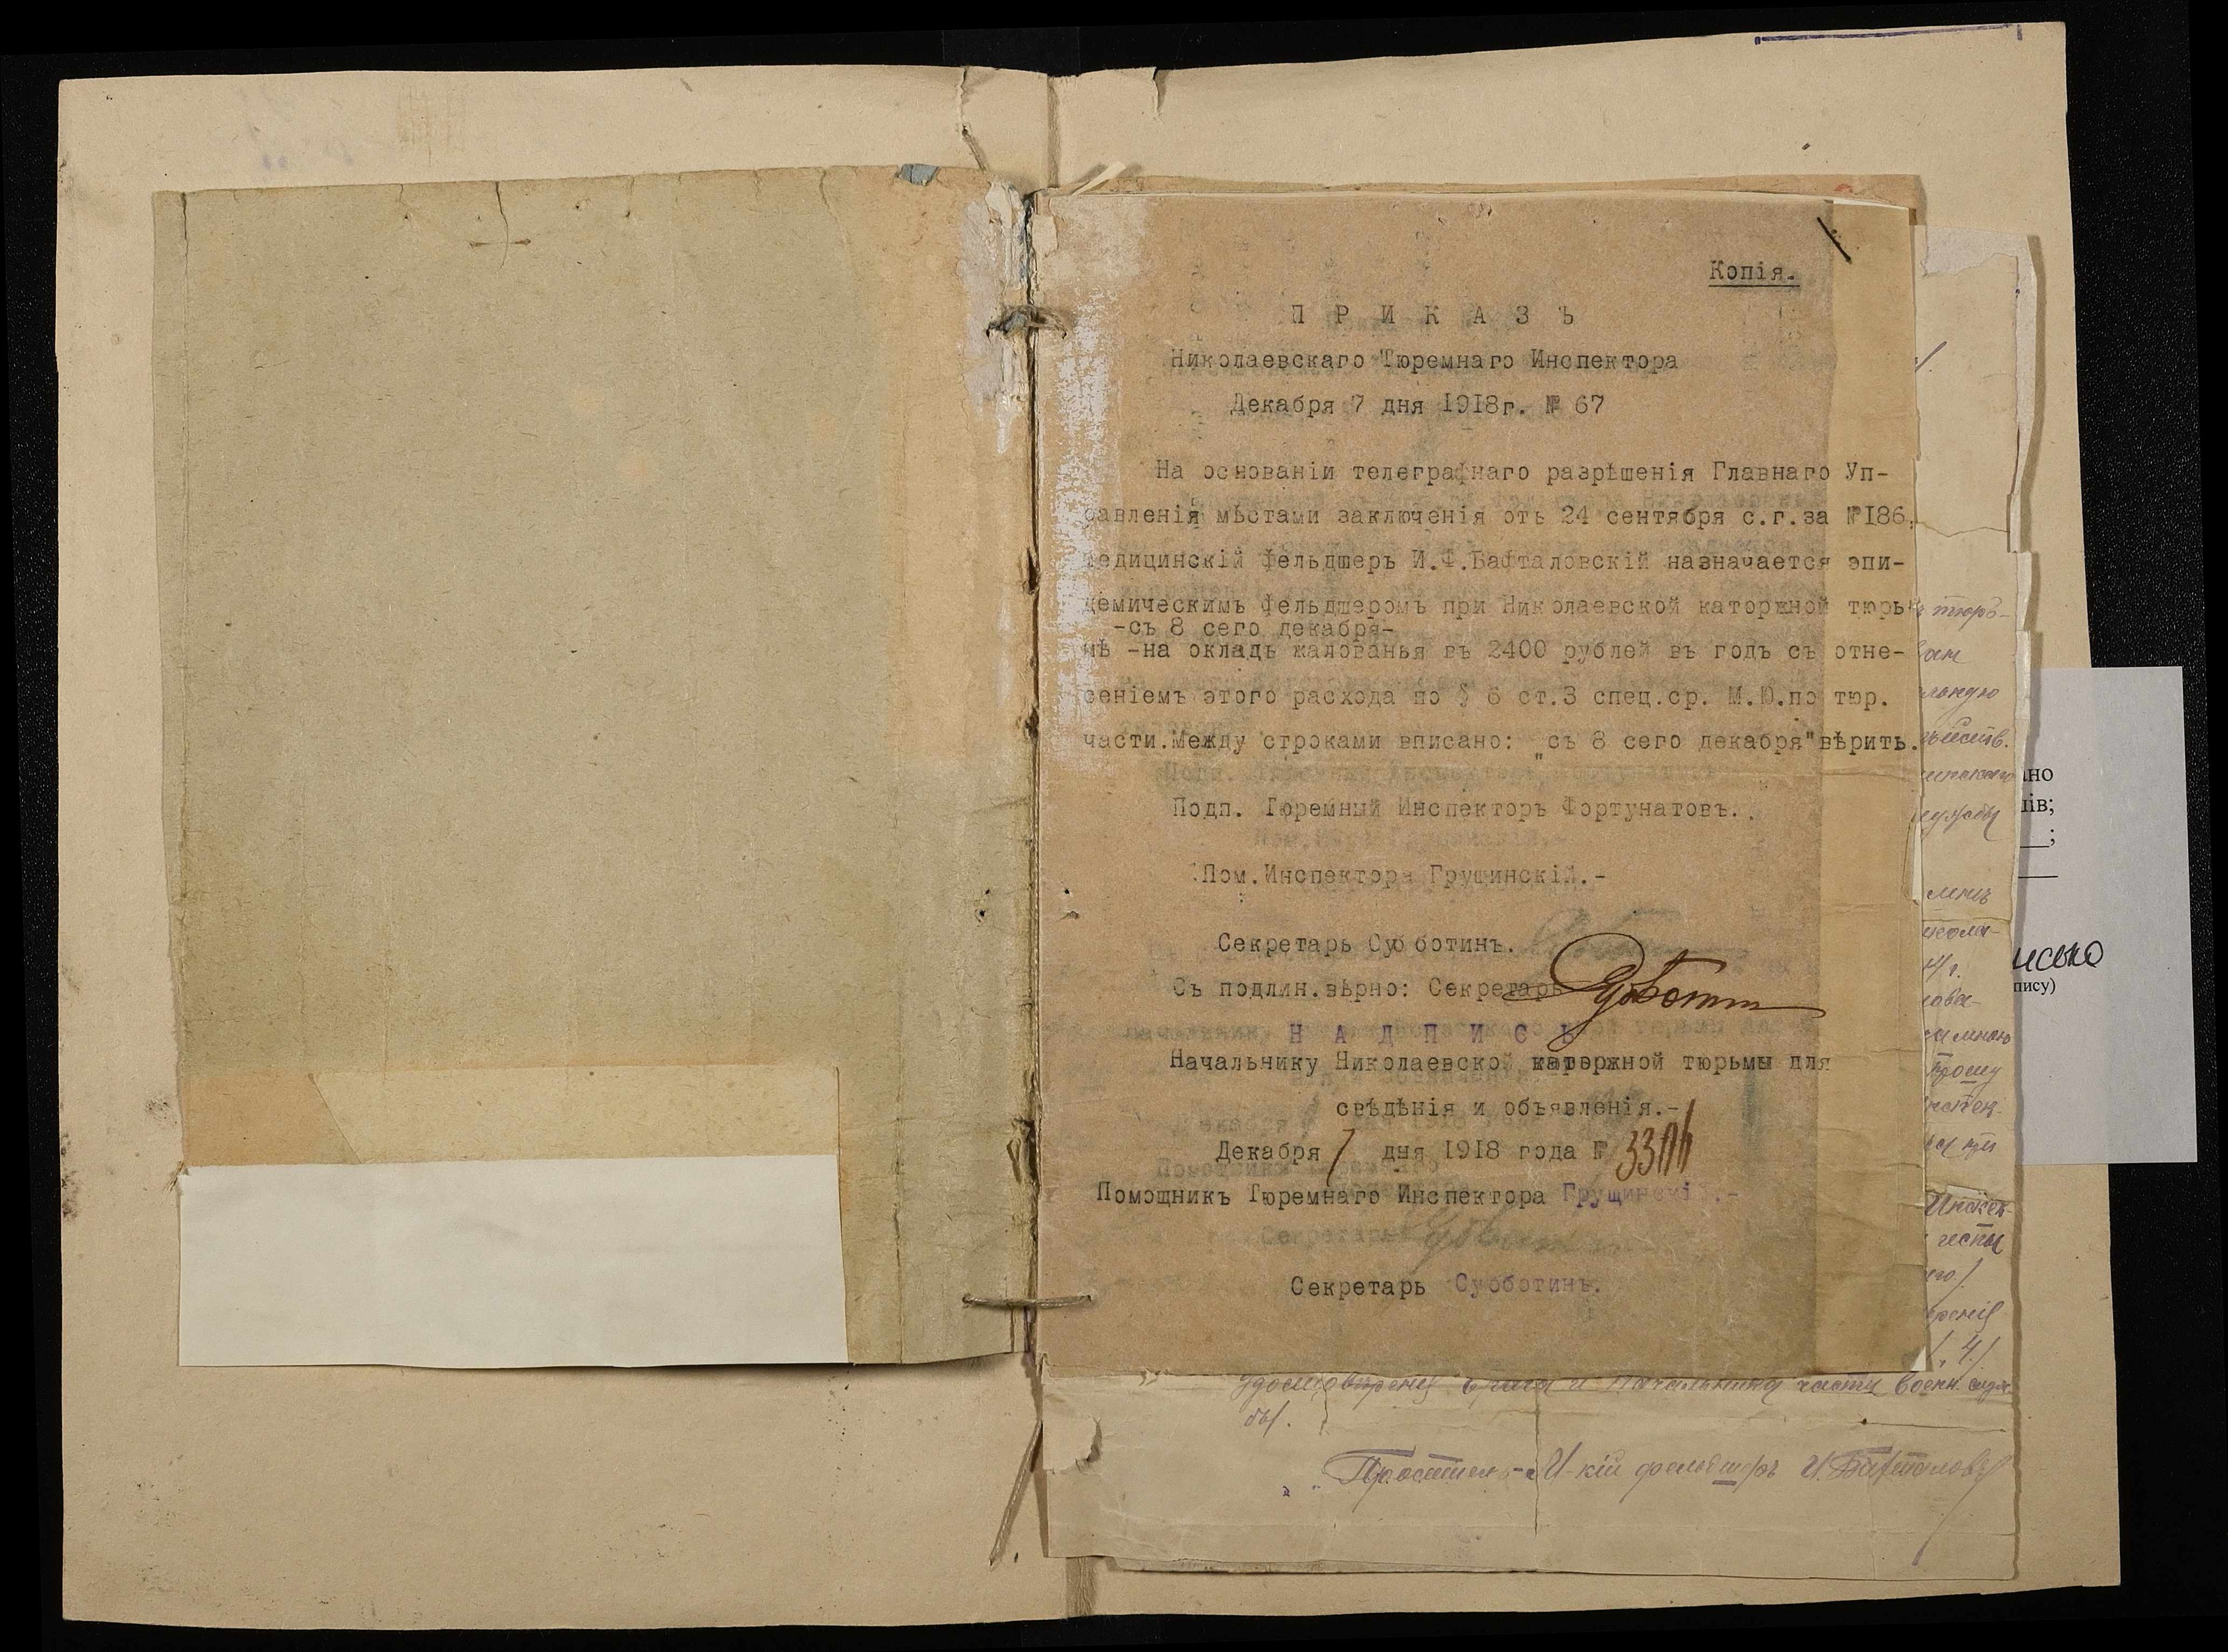 Копія.
П Р И К А З Ъ
Николаевскаго Тюремнаго Инспектора
Декабря 7 дня 1918г. № 67
На основаніи телеграфнаго разрѣшенія Главнаго Уп-
равленія мѣстами заключенія отъ 24 сентября с.г.за №I86.
медицинскій фельдшеръ И.Ф.Бафталовскій назначается эпи-
демическимъ фельдшеромъ при Николаевской каторжной тюрь-
-съ 8 сего декабря-
мѣ -на окладъ жалованья въ 2400 рублей въ годъ съ отне-
сеніемъ этого расхода по § 6 ст.3 спец.ср. М.Ю.по тюр.
части.Между строками вписано: „съ 8 сего декабря"вѣрить.
Подп. Тюремный Инспекторъ Фортунатовъ.
Пом.Инспектора Грущинскій.-
Секретарь Субботинъ.
Съ подлин.вѣрно: Секретарь
Н А Д П И С Ь
Начальнику Николаевской каторжной тюрьмы для
свѣдѣнія и объявленія.-
Декабря 7 дня 1918 года №
Помощникъ Тюремнаго Инспектора Грущинскій.-
Секретарь Субботинъ.
тюрь-
мнѣ
Прошу
и Начальника части Воен. служ-
бы.
фельдшеръ И. Бафталовск
но
ів;
пису)